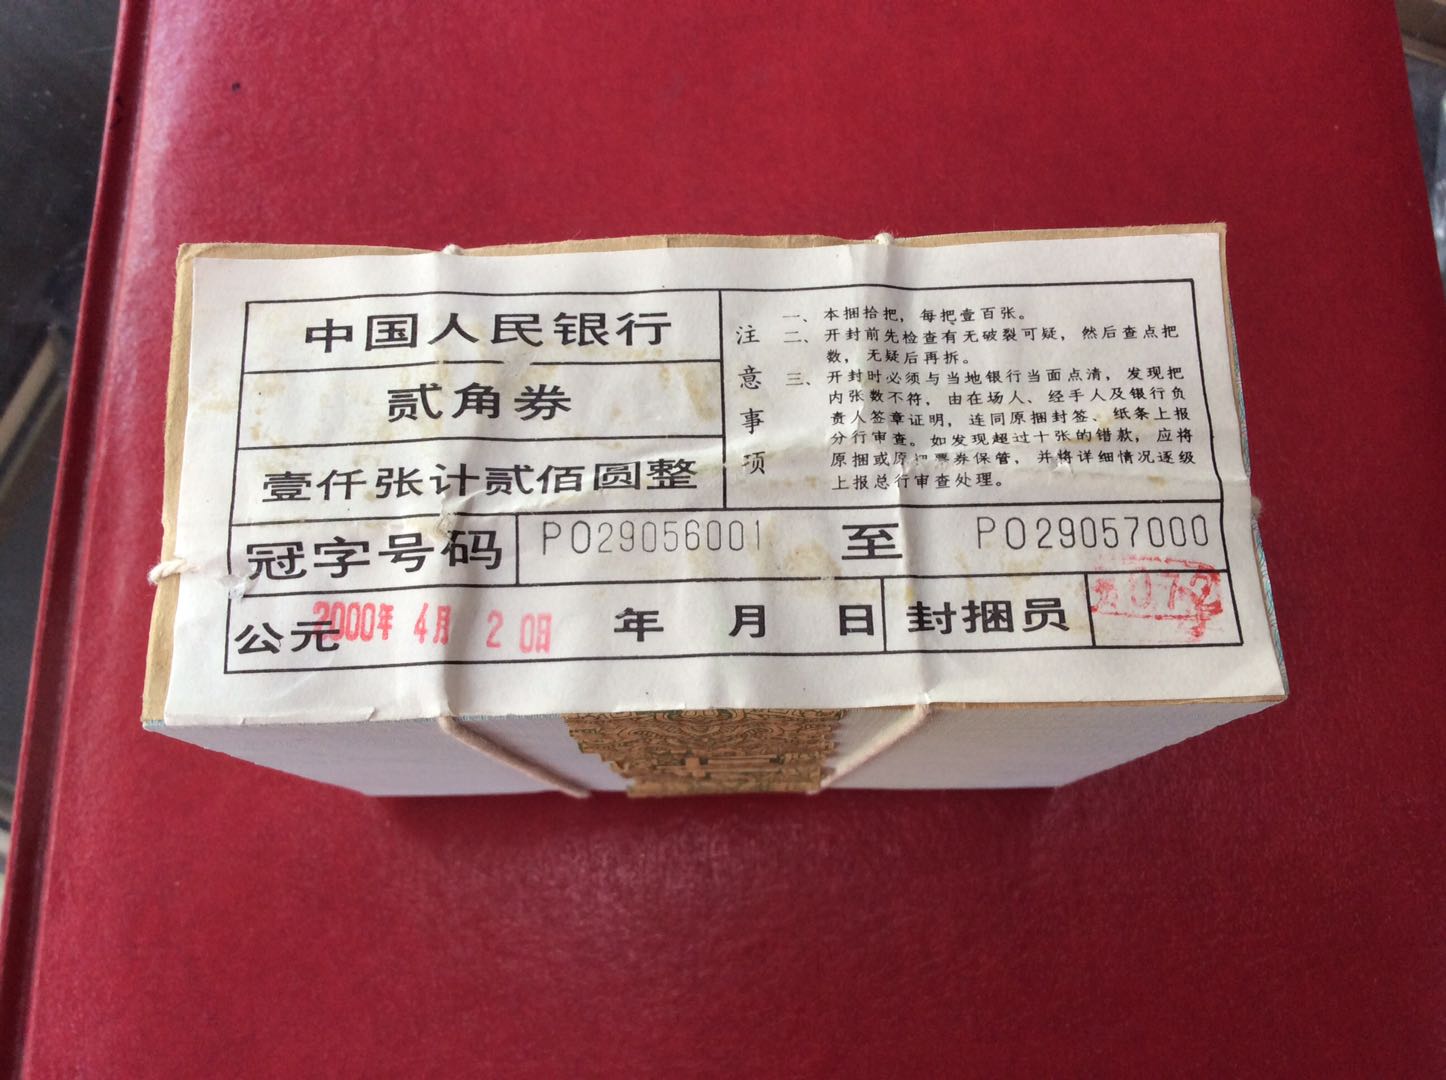 中国人民银行
贰角券
壹仟张计贰佰圆整
注意事项
一、本捆拾把，每把壹百张。
二、开封前先检查有无破裂可疑，然后查点把
数，无疑后再拆。
三、开封时必须与当地银行当面点清，发现把
内张数不符，由在场人、经手人及银行负
责人签章证明，连同原捆封签、纸条上报
分行审查。如发现超过十张的错款，应将
原捆或原把票券保管，并将详细情况逐级
上报总行审查处理。
冠字号码 PO29056001 至 PO29057000
公元 2000年 4月 20日 年 月 日 封捆员 072